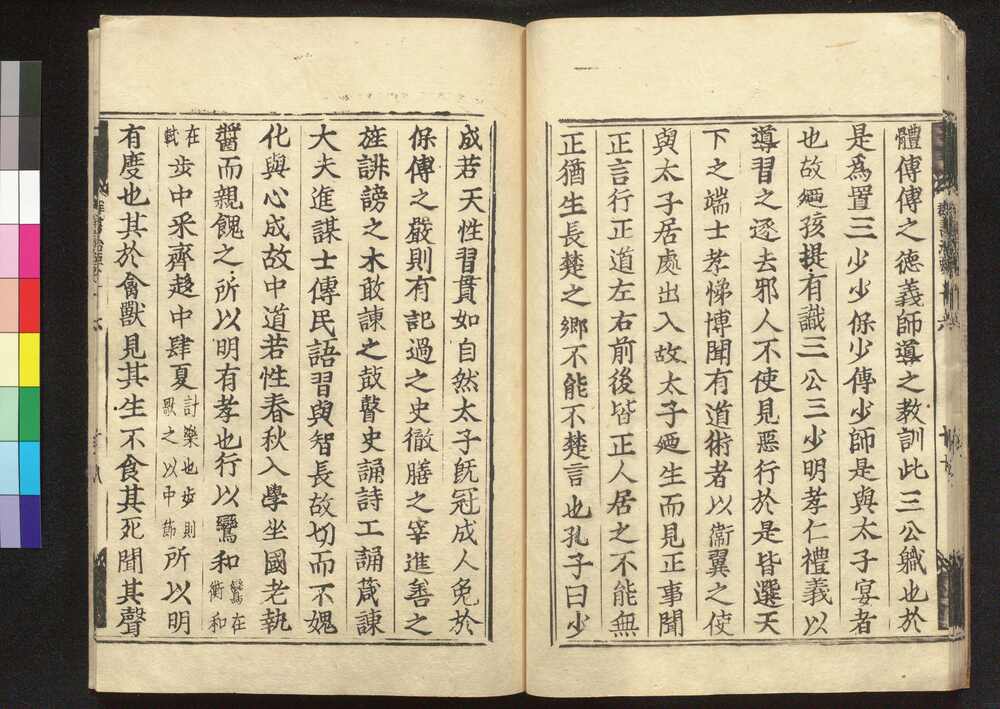 體傅傅之德義師導之教訓此三公軄也於
是爲置三少少保少傅少師是與太子宴者
也故廼孩提有識三公三少明孝仁禮義以
導習之逐去邪人不使見惡行於是皆選天
下之端士孝悌博聞有道術者以衞翼之使
與太子居處出入故太子廼生而見正事聞
正言行正道左右前後皆正人居之不能無
正猶生長楚之鄉不能不楚言也孔子曰少
成若天性習貫如自然太子旣冠成人免於
保傅之嚴則有記過之史徹膳之宰進善之
旌誹謗之木敢諫之鼓瞽史誦詩工誦葴諫
大夫進謀士傳民語習與智長故切而不媿
化與心成故中道若性春秋入學坐國老執
醬而親餽之所以明有孝也行以鸞和鸞在衡和
在軾步中采齊趍中肆夏計樂也步則歌之以中節所以明
有度也其於禽獸見其生不食其死聞其聲